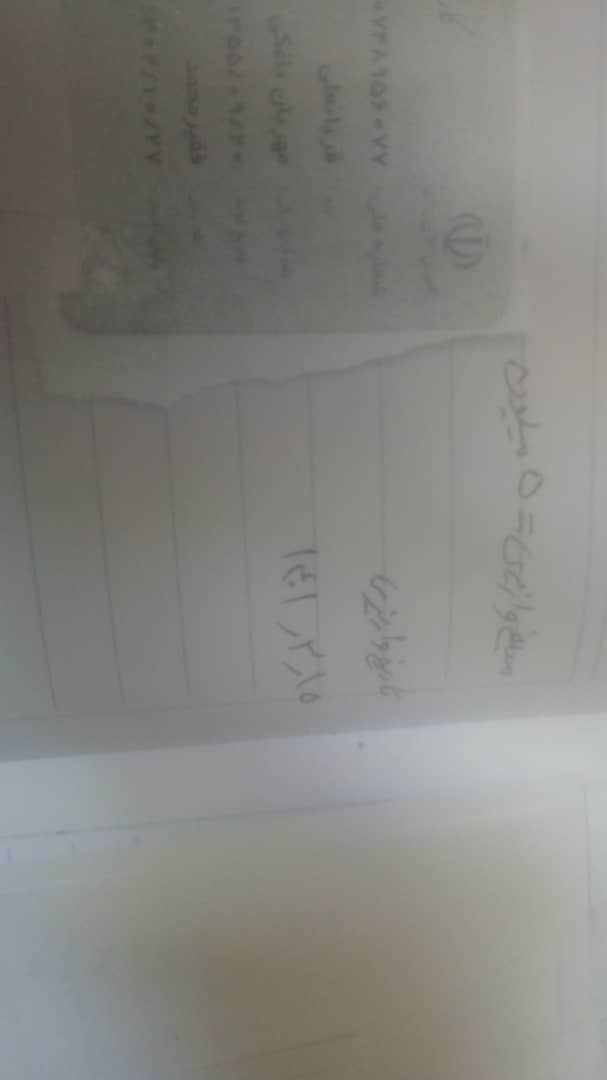 مبلغ واریزی = ۵ میلیون
تاریخ واریزی
۱۴۰۱ ر ۲ ر ۱۵
شماره ملی: ۰۷۴۸۹۵۶۰۷۷
نام: قربانعلی
نام خانوادگی: مهربان باغکی
۱۳۵۵/۰۹/۲۰
نام پدر: فقیرمحمد
۱۴۰۲/۱۰/۲۷